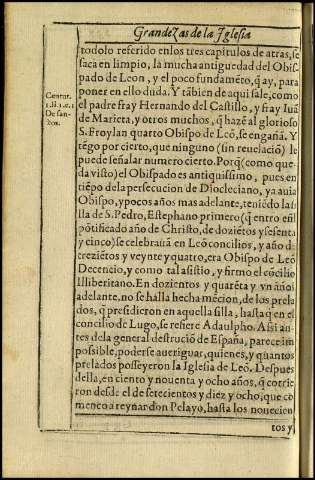 Grandezas de la Iglesia
todolo referido enlos tres capitulos de atras, se
saca en limpio, la mucha antiguedad del Obis-
pado de Leon, y el poco fundamēto, q̄ ay, para
poner en ello duda. Y tābien de aqui sale, como
el padre fray Hernando del Castillo, y fray Iuā
de Marieta, y otros muchos, q̄ hazē al glorioso
S. Froylan quarto Obispo de Leō, se engañā. Y
tēgo por cierto, que ninguno (sin reuelaciō) le
puede señalar numero cierto. Porq̄ (como que-
da visto) el Obispado es antiquissimo, pues en
tiēpo dela persecucion de Diocleciano, ya auia
Obispo, y pocos años mas adelante, teniēdo la si
lla de S. Pedro, Estephano primero (q̄ entro enl
pōtificado año de Christo, de doziētos y sesenta
y cinco) se celebrarā en Leō concilios, y año d̄
treziētos y veynte y quatro, era Obispo de Leō
Decencio, y como tal asistio, y firmo el cōcilio
Illiberitano. En dozientos y quarēta y vn años
adelante, no se halla hecha mēcion, de los prela
dos, q̄ presidieron en aquella silla, hasta q̄ en el
concilio de Lugo, se refiere Adaulpho. Assi an-
tes dela general destruciō de España, parece im
possible, poderse aueriguar, quienes, y quantos
prelados posseyeron la Iglesia de Leō. Despues
della, en ciento y nouenta y ocho años, q̄ corrie
ron desde el de setecientos y diez y ocho, que co
menço a reynar don Pelayo, hasta los nouecien
tos y
Centur.
De san-
tos.